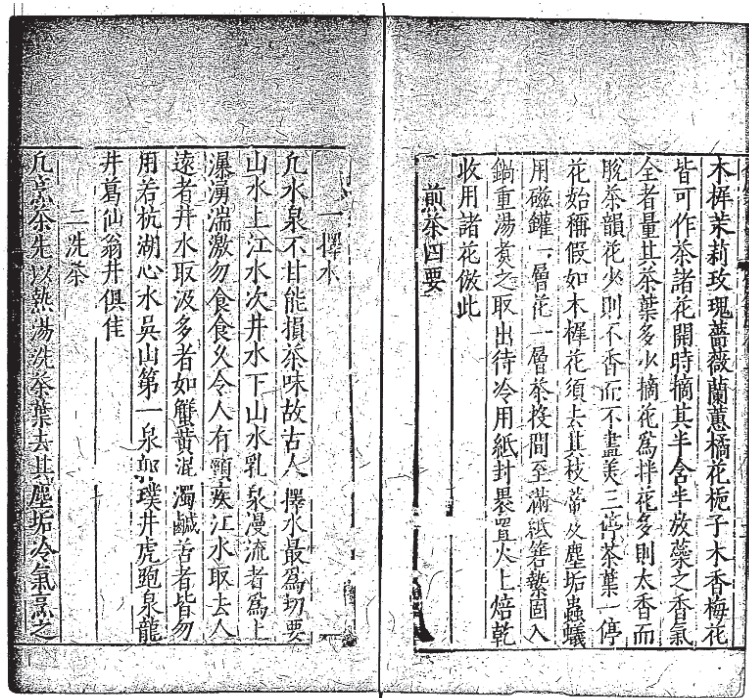 木樨茉莉玫瑰薔薇蘭蕙橘花梔子木香梅花
皆可作茶諸花開時摘其半含半放蘂之香氣
全者量其茶葉多少摘花爲拌花多則太香而
脫茶韻花少則不香而不盡美三停茶葉一停
花始稱假如木樨花須去其枝蒂及塵垢蟲蟻
用磁鑵一層花一層茶投間至滿紙箬縶固入
鍋重湯煑之取出待冷用紙封裹置火上焙乾
收用諸花倣此
煎茶四要
一擇水
凢水泉不甘能損茶味故古人擇水最爲切要
山水上江水次井水下山水乳泉漫流者爲上
瀑湧湍激勿食食久令人有頸疾江水取去人
遠者井水取汲多者如蟹黃混濁鹹苦者皆勿
用若杭湖心水吳山第一泉郭璞井虎跑泉龍
井葛仙翁井俱佳
二洗茶
凢烹茶先以熱湯洗茶葉去其塵垢冷氣烹之